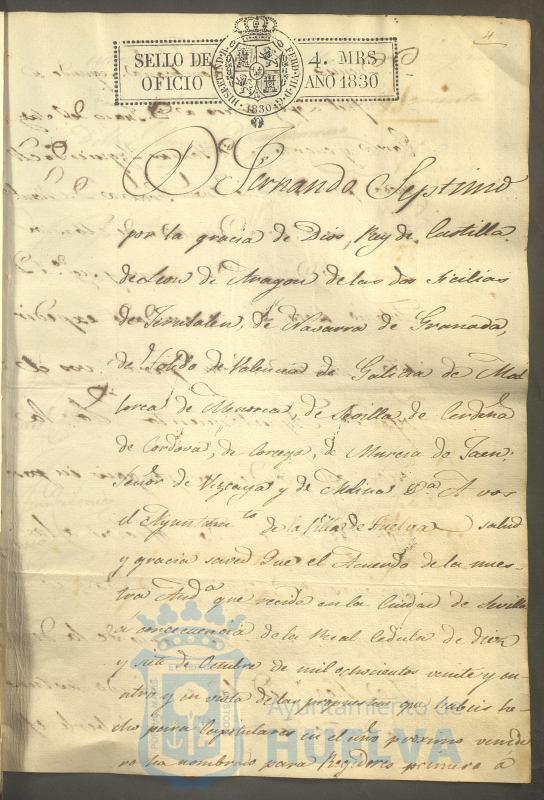 4
SELLO DE OFICIO
4. MRS AÑO 1830
HISP. ET IND. R. FERD. VII D. G. 1830
Dn. Fernando Septimo
por la gracia de Dios, Rey de Castilla
de Leon de Aragon de las dos Sicilias
de Jerusalen, de Navarra de Granada,
de Toledo de Valencia de Galicia de Mal
lorca de Menorca, de Sevilla de Cerdeña
de Cordova, de Corcega, de Murcia de Jaen,
Señor de Vizcaya y de Molina &a. A vos
el Ayuntamto. de la Villa de Huelva salud
y gracia saved Que el Acuerdo de la nues-
tra Auda. que recide en la Ciudad de Sevilla
a concecuencia de la Real Cedula de diez
y siete de Octubre de mil ochocientos veinte y cu
atro y en vista de las propuestas que habeis he-
cho para Capitulares en el año proximo venide
ro ha nombrado para Regidores primero á
Ayuntamiento de
HUELVA